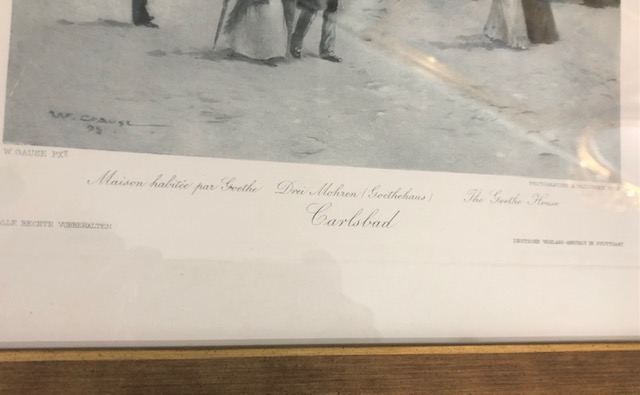 W. Gause
95
W. GAUSE PXT
Maison habitée par Goethe Drei Mohren (Goethehaus) The Goethe House
Carlsbad
ALLE RECHTE VORBEHALTEN
DEUTSCHE VERLAGS-ANSTALT IN STUTTGART